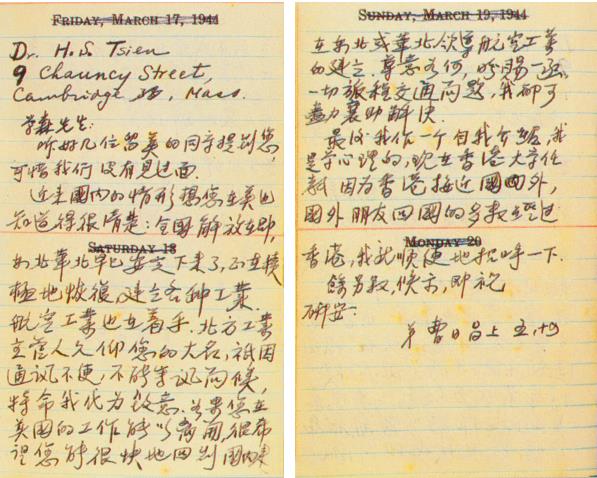 FRIDAY, MARCH 17, 1944
Dr. H.S. Tsien
9 Chauncy Street,
Cambridge 38, Mass.
学森先生:
听好几位留美的同学提到您,
可惜我们没有見过面。
近来國内的情形想您在美也
知道得很清楚:全國解放在即,
SATURDAY 18
东北華北早已安定下来了,正在積
極地恢復,建立各种工業,
航空工業也在着手。北方工業
主管人久仰您的大名,祇因
通讯不便,不能来讯问候,
特命我代为致意。如果您在
美國的工作能够离開,很希
望您能很快地回到國内来
SUNDAY, MARCH 19, 1944
在东北或華北领導航空工業
的建立。尊意如何,盼赐一函。
一切旅程交通问题,我都可
盡力襄助解决。
最後我作一个自我介紹,我
是学心理的,现在香港大学任
教,因为香港接近國内外,
國外朋友回國的多数經过
MONDAY 20
香港,我就顺便地招呼一下。
餘另叙,候示,即祝
研安.
弟曹日昌上 五,十四